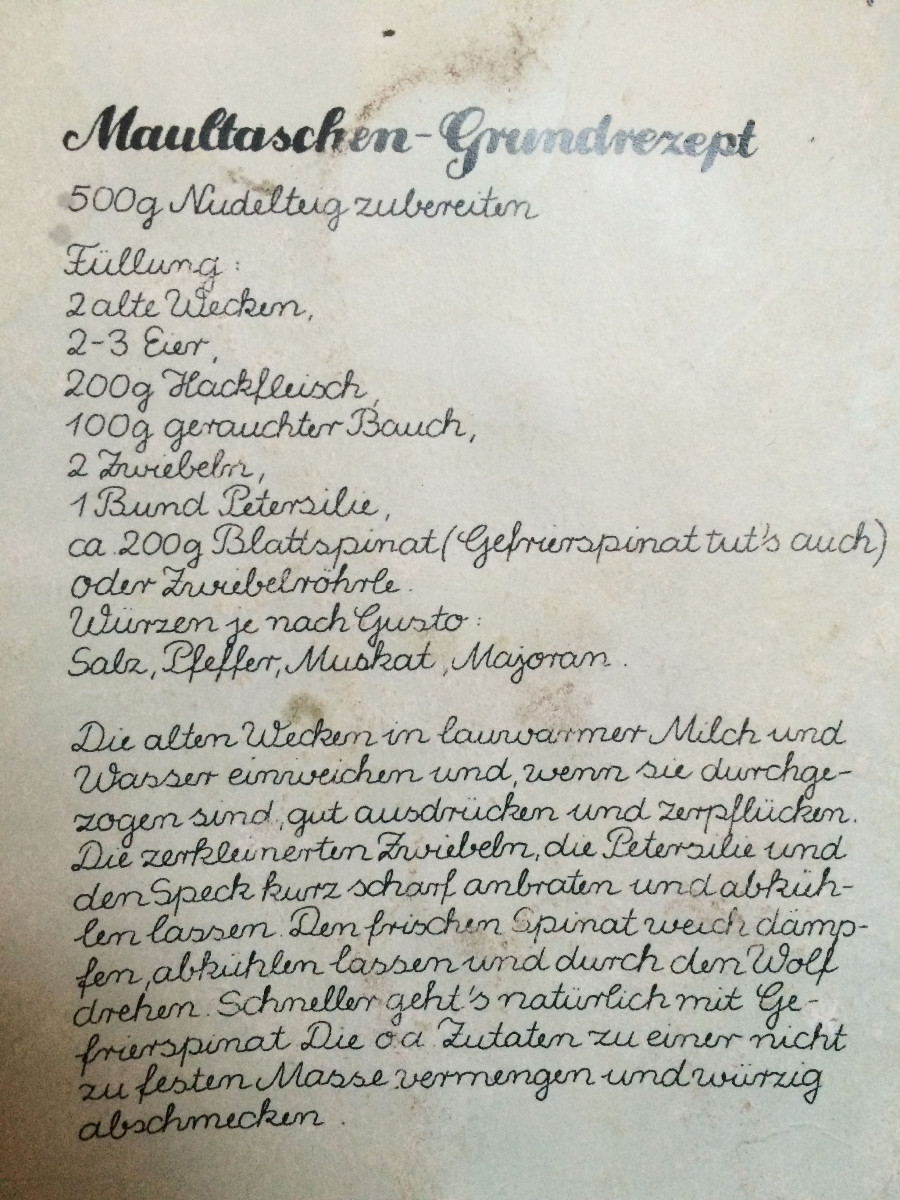 Maultaschen-Grundrezept
500g Nudelteig zubereiten
Füllung:
2 alte Wecken,
2-3 Eier,
200g Hackfleisch,
100g gerauchter Bauch,
2 Zwiebeln,
1 Bund Petersilie,
ca. 200g Blattspinat (Gefrierspinat tut's auch)
oder Zwiebelröhrle.
Würzen je nach Gusto:
Salz, Pfeffer, Muskat, Majoran.
Die alten Wecken in lauwarmer Milch und
Wasser einweichen und, wenn sie durchge-
zogen sind, gut ausdrücken und zerpflücken.
Die zerkleinerten Zwiebeln, die Petersilie und
den Speck kurz scharf anbraten und abküh-
len lassen. Den frischen Spinat weich dämp-
fen, abkühlen lassen und durch den Wolf
drehen. Schneller geht's natürlich mit Ge-
frierspinat. Die o.a. Zutaten zu einer nicht
zu festen Masse vermengen und würzig
abschmecken.